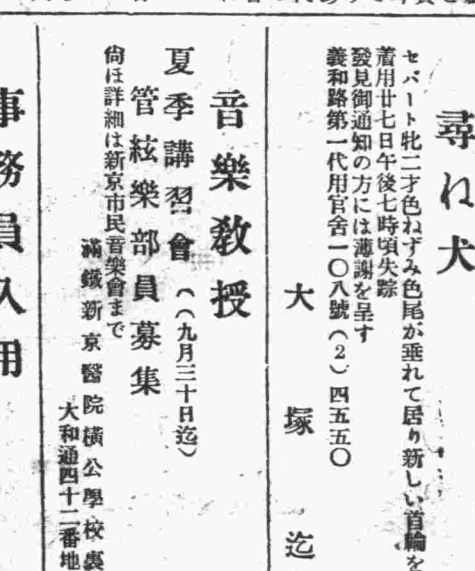 尋ね犬
セパート牝二才色ねずみ色尾が垂れて居り新しい首輪を
着用廿七日午後七時頃失踪
發見御通知の方には薄謝を呈す
義和路第一代用官舍一〇八號(2)四五五〇
大塚迄
音樂敎授
夏季講習會((九月三十日迄)
管絃樂部員募集
尙ほ詳細は新京市民音樂會まで
滿鐵新京醫院橫公學校裏
大和通四十二番地
事務員入用